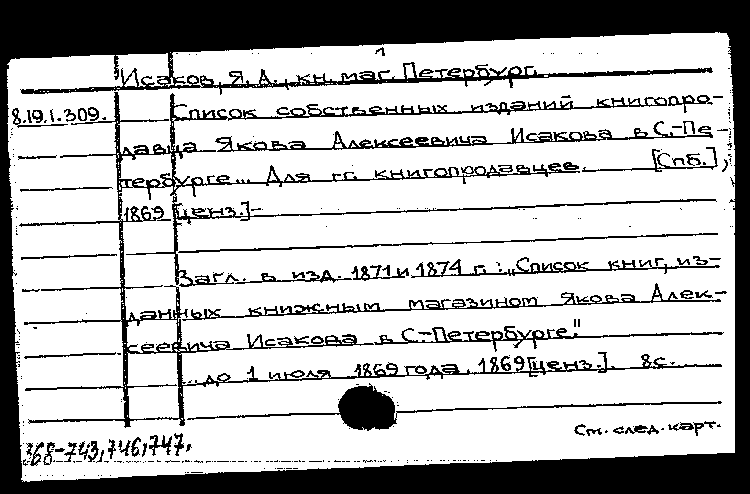 1
Исаков, Я. А., кн. маг. Петербург.
8.19.1.309. Список собственных изданий книгопро-
давца Якова Алексеевича Исакова в С.-Пе-
тербурге... Для гг. книгопродавцев. [Спб.],
1869 [ценз.]-
Загл. в изд. 1871 и 1874 г.: „Список книг, из-
данных книжным магазином Якова Алек-
сеевича Исакова в С.-Петербурге."
...до 1 июля 1869 года. 1869 [ценз.]. 8с.
См. след. карт.
368-743,746,747.